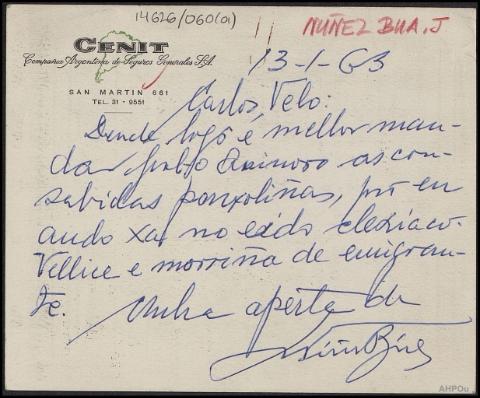 14626/060(01)
NÚÑEZ BUA, J
CENIT
Compañía Argentina de Seguros Generales S.A.
SAN MARTIN 661
TEL. 31 - 9551
13-1-63
Carlos Velo:
Dende logo é mellor man-
dar as con-
sabidas panxoliñas, pro eu
ando xa no eido elexíaco.
Vellice e morriña de emigran-
te.
Unha aperta de
AHPOu